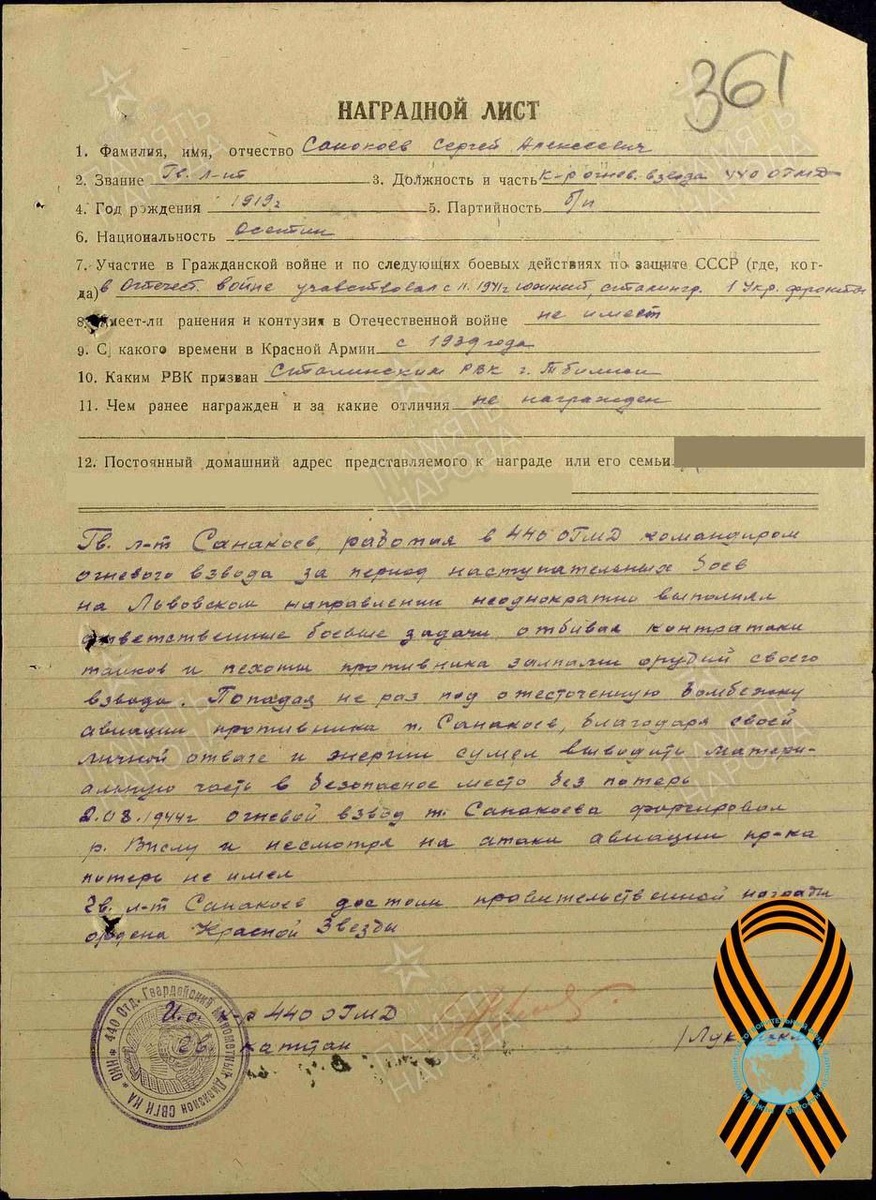 361
НАГРАДНОЙ ЛИСТ
1. Фамилия, имя, отчество Санакоев Сергей Алексеевич
2. Звание Гв. л-нт 3. Должность и часть к-р огнев. взвода 440 ОГМД
4. Год рождения 1919 г 5. Партийность б/п
6. Национальность Осетин
7. Участие в Гражданской войне и по следующих боевых действиях по защите СССР (где, ког-
да) в Отечест. войне учавствовал с 11. 1941г южный, сталингр. 1 Укр. фронты
8. Имеет-ли ранения и контузия в Отечественной войне не имеет
9. С какого времени в Красной Армии с 1939 года
10. Каким РВК призван Сталинским РВК г. Тбилиси
11. Чем ранее награжден и за какие отличия не награжден
12. Постоянный домашний адрес представляемого к награде или его семьи
Гв. л-т Санакоев, работая в 440 ОГМД командиром
огневого взвода за период наступательных боев
на Львовском направлении неоднократно выполнял
ответственные боевые задачи отбивая контратаки
танков и пехоты противника залпами орудий своего
взвода. Попадая не раз под ожесточенную бомбежку
авиации противника т. Санакоев, благодаря своей
личной отваге и энергии сумел выводить матери-
альную часть в безопасное место без потерь
2.08.1944г огневой взвод т. Санакоева форсировал
р. Вислу и несмотря на атаки авиации пр-ка
потерь не имел
Гв. л-т Санакоев достоин правительственной награды
ордена Красной Звезды
И.о. к-р 440 ОГМД
Гв. капитан
440 Отд. Гвардейский Минометный Дивизион СВГК КА
ПАМЯТЬ НАРОДА